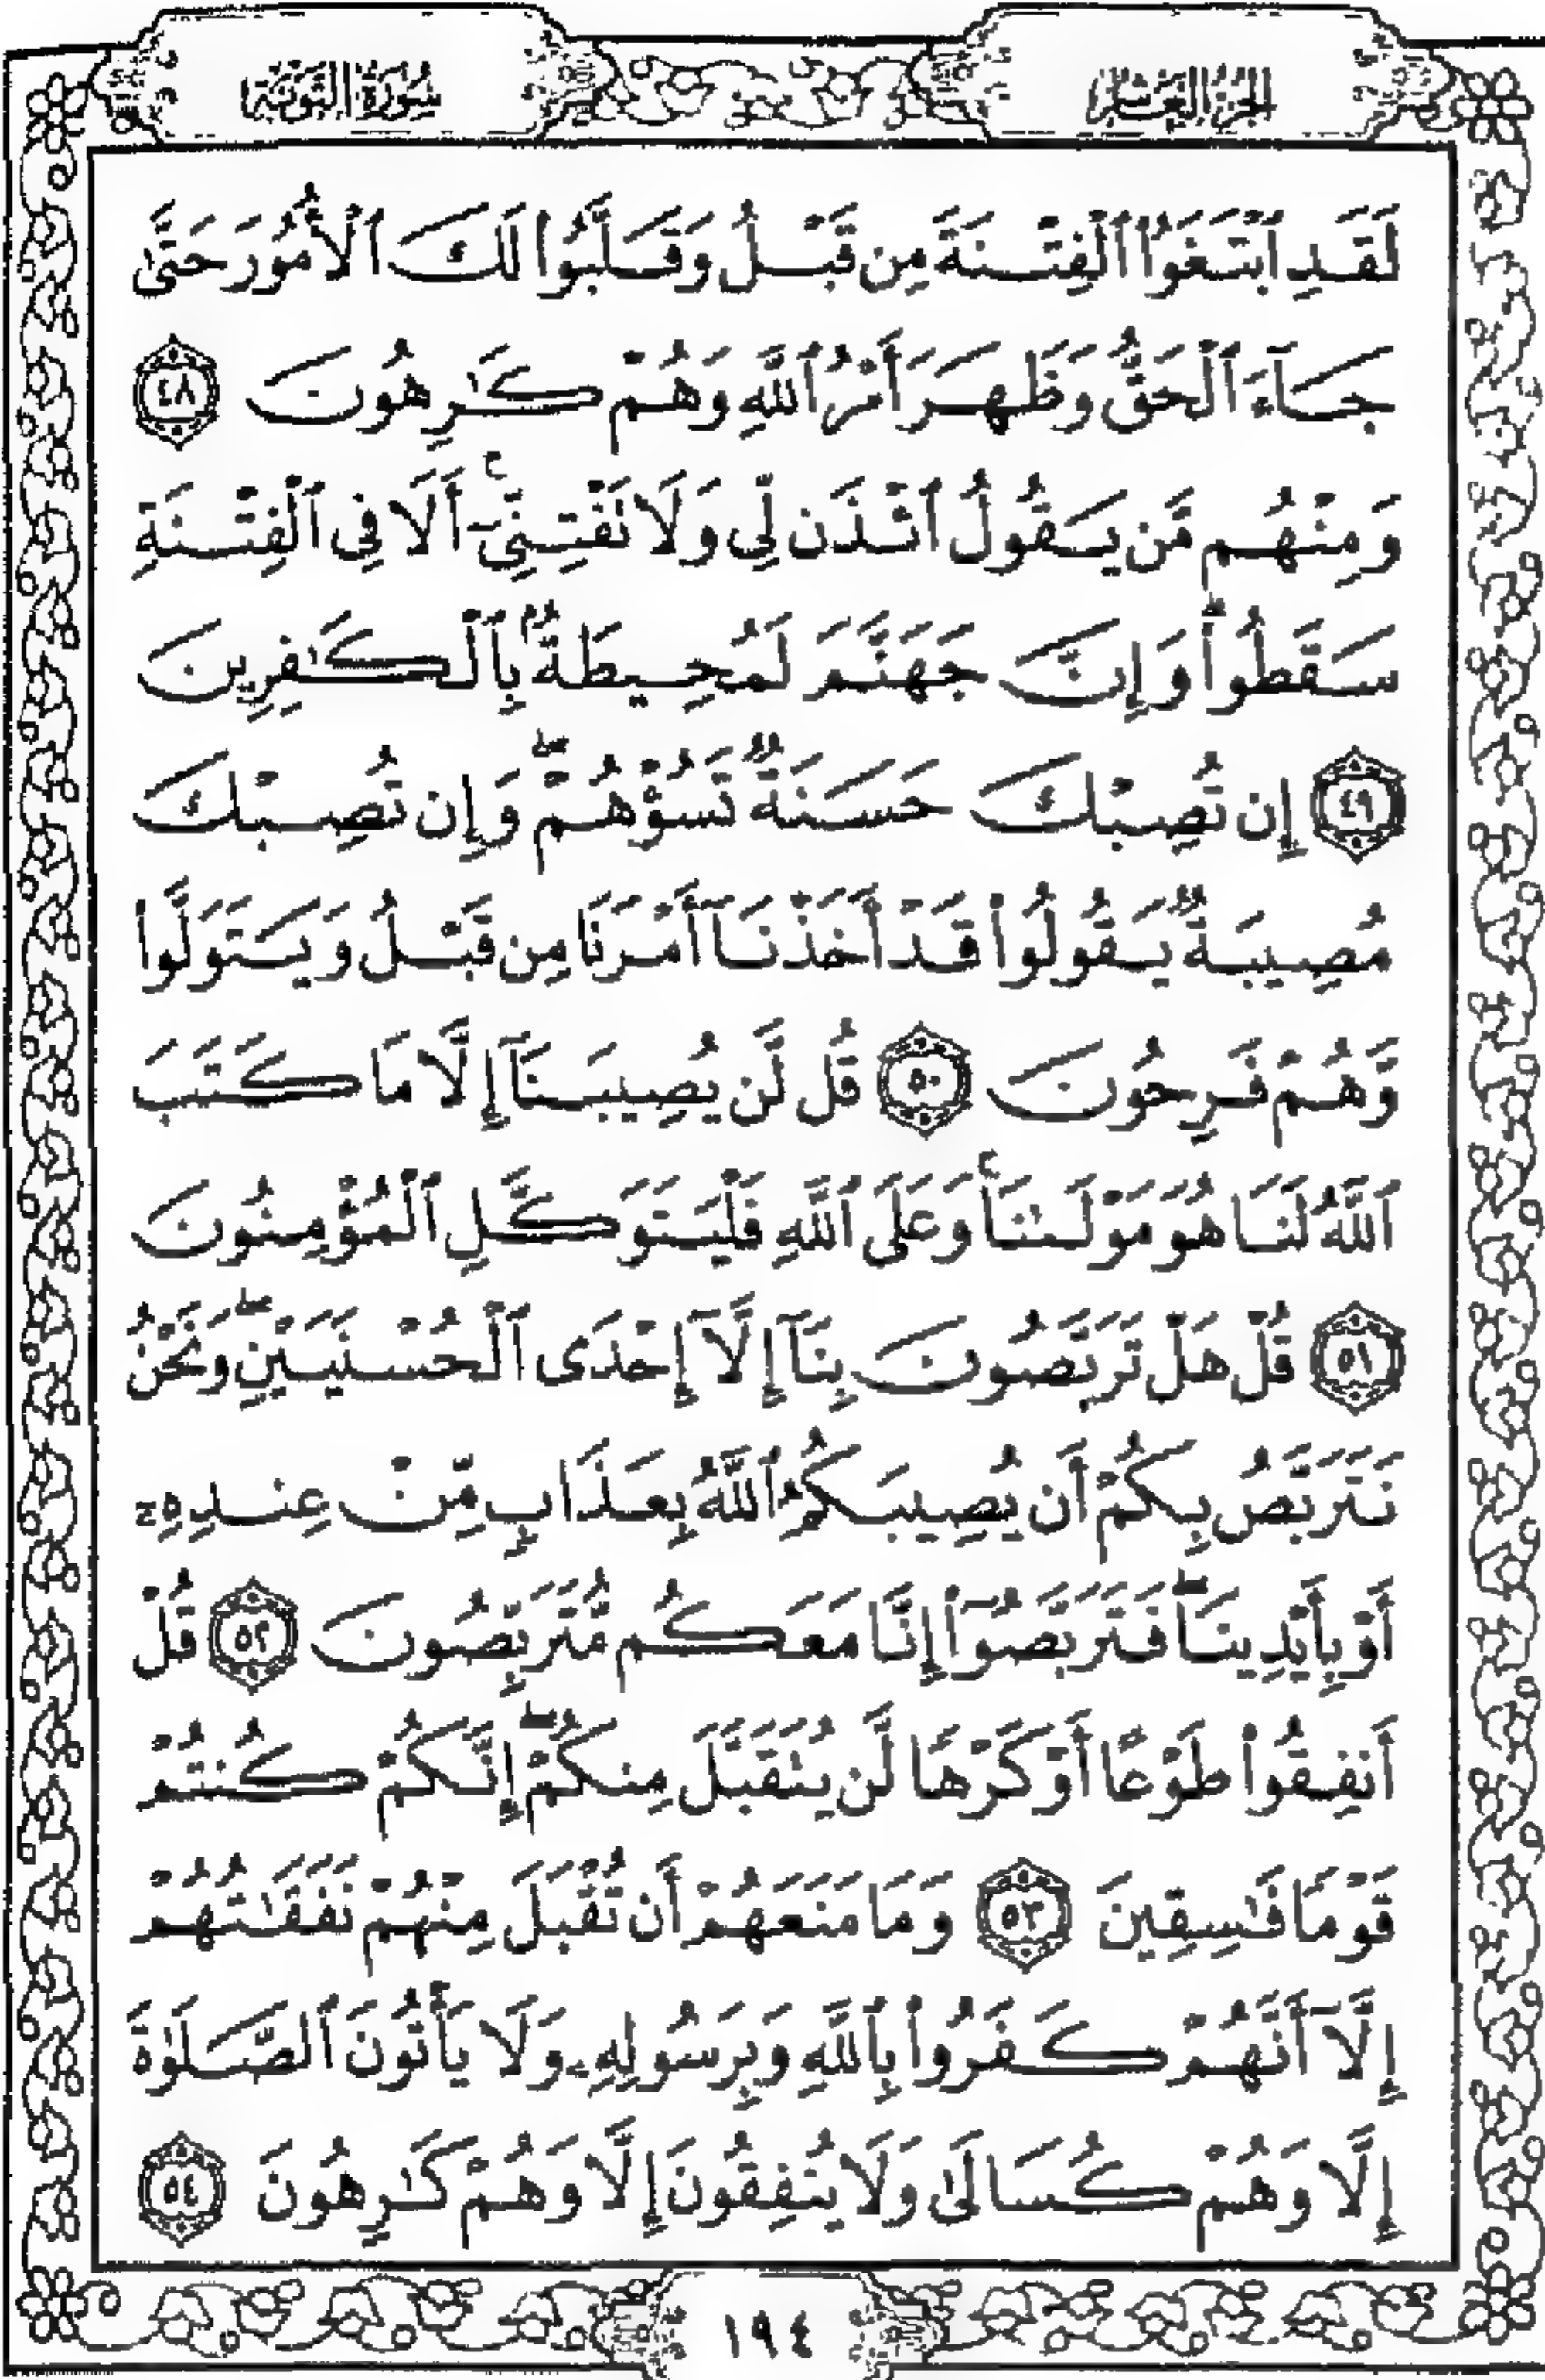 الجزء العاشر
سورة التوبة
لَقَدِ ٱبْتَغَوُا۟ ٱلْفِتْنَةَ مِن قَبْلُ وَقَلَّبُوا۟ لَكَ ٱلْأُمُورَ حَتَّىٰ
جَآءَ ٱلْحَقُّ وَظَهَرَ أَمْرُ ٱللَّهِ وَهُمْ كَٰرِهُونَ ٤٨
وَمِنْهُم مَّن يَقُولُ ٱئْذَن لِّى وَلَا تَفْتِنِّىٓ ۚ أَلَا فِى ٱلْفِتْنَةِ
سَقَطُوا۟ ۗ وَإِنَّ جَهَنَّمَ لَمُحِيطَةٌۢ بِٱلْكَٰفِرِينَ
٤٩ إِن تُصِبْكَ حَسَنَةٌ تَسُؤْهُمْ ۖ وَإِن تُصِبْكَ
مُصِيبَةٌ يَقُولُوا۟ قَدْ أَخَذْنَآ أَمْرَنَا مِن قَبْلُ وَيَتَوَلَّوا۟
وَّهُمْ فَرِحُونَ ٥٠ قُل لَّن يُصِيبَنَآ إِلَّا مَا كَتَبَ
ٱللَّهُ لَنَا هُوَ مَوْلَىٰنَا ۚ وَعَلَى ٱللَّهِ فَلْيَتَوَكَّلِ ٱلْمُؤْمِنُونَ
٥١ قُلْ هَلْ تَرَبَّصُونَ بِنَآ إِلَّآ إِحْدَى ٱلْحُسْنَيَيْنِ ۖ وَنَحْنُ
نَتَرَبَّصُ بِكُمْ أَن يُصِيبَكُمُ ٱللَّهُ بِعَذَابٍ مِّنْ عِندِهِۦٓ
أَوْ بِأَيْدِينَا ۖ فَتَرَبَّصُوٓا۟ إِنَّا مَعَكُم مُّتَرَبِّصُونَ ٥٢ قُلْ
أَنفِقُوا۟ طَوْعًا أَوْ كَرْهًا لَّن يُتَقَبَّلَ مِنكُمْ ۖ إِنَّكُمْ كُنتُمْ
قَوْمًا فَٰسِقِينَ ٥٣ وَمَا مَنَعَهُمْ أَن تُقْبَلَ مِنْهُمْ نَفَقَٰتُهُمْ
إِلَّآ أَنَّهُمْ كَفَرُوا۟ بِٱللَّهِ وَبِرَسُولِهِۦ وَلَا يَأْتُونَ ٱلصَّلَوٰةَ
إِلَّا وَهُمْ كُسَالَىٰ وَلَا يُنفِقُونَ إِلَّا وَهُمْ كَٰرِهُونَ ٥٤
١٩٤